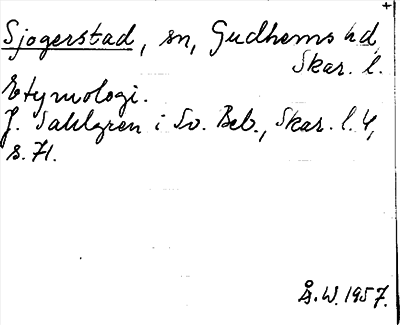 +
Sjogerstad, sn, Gudhems hd,
Skar. l.
Etymologi.
J. Sahlgren i Sv. Beb., Skar. l. 4,
s. 71.
Å.W. 1957.